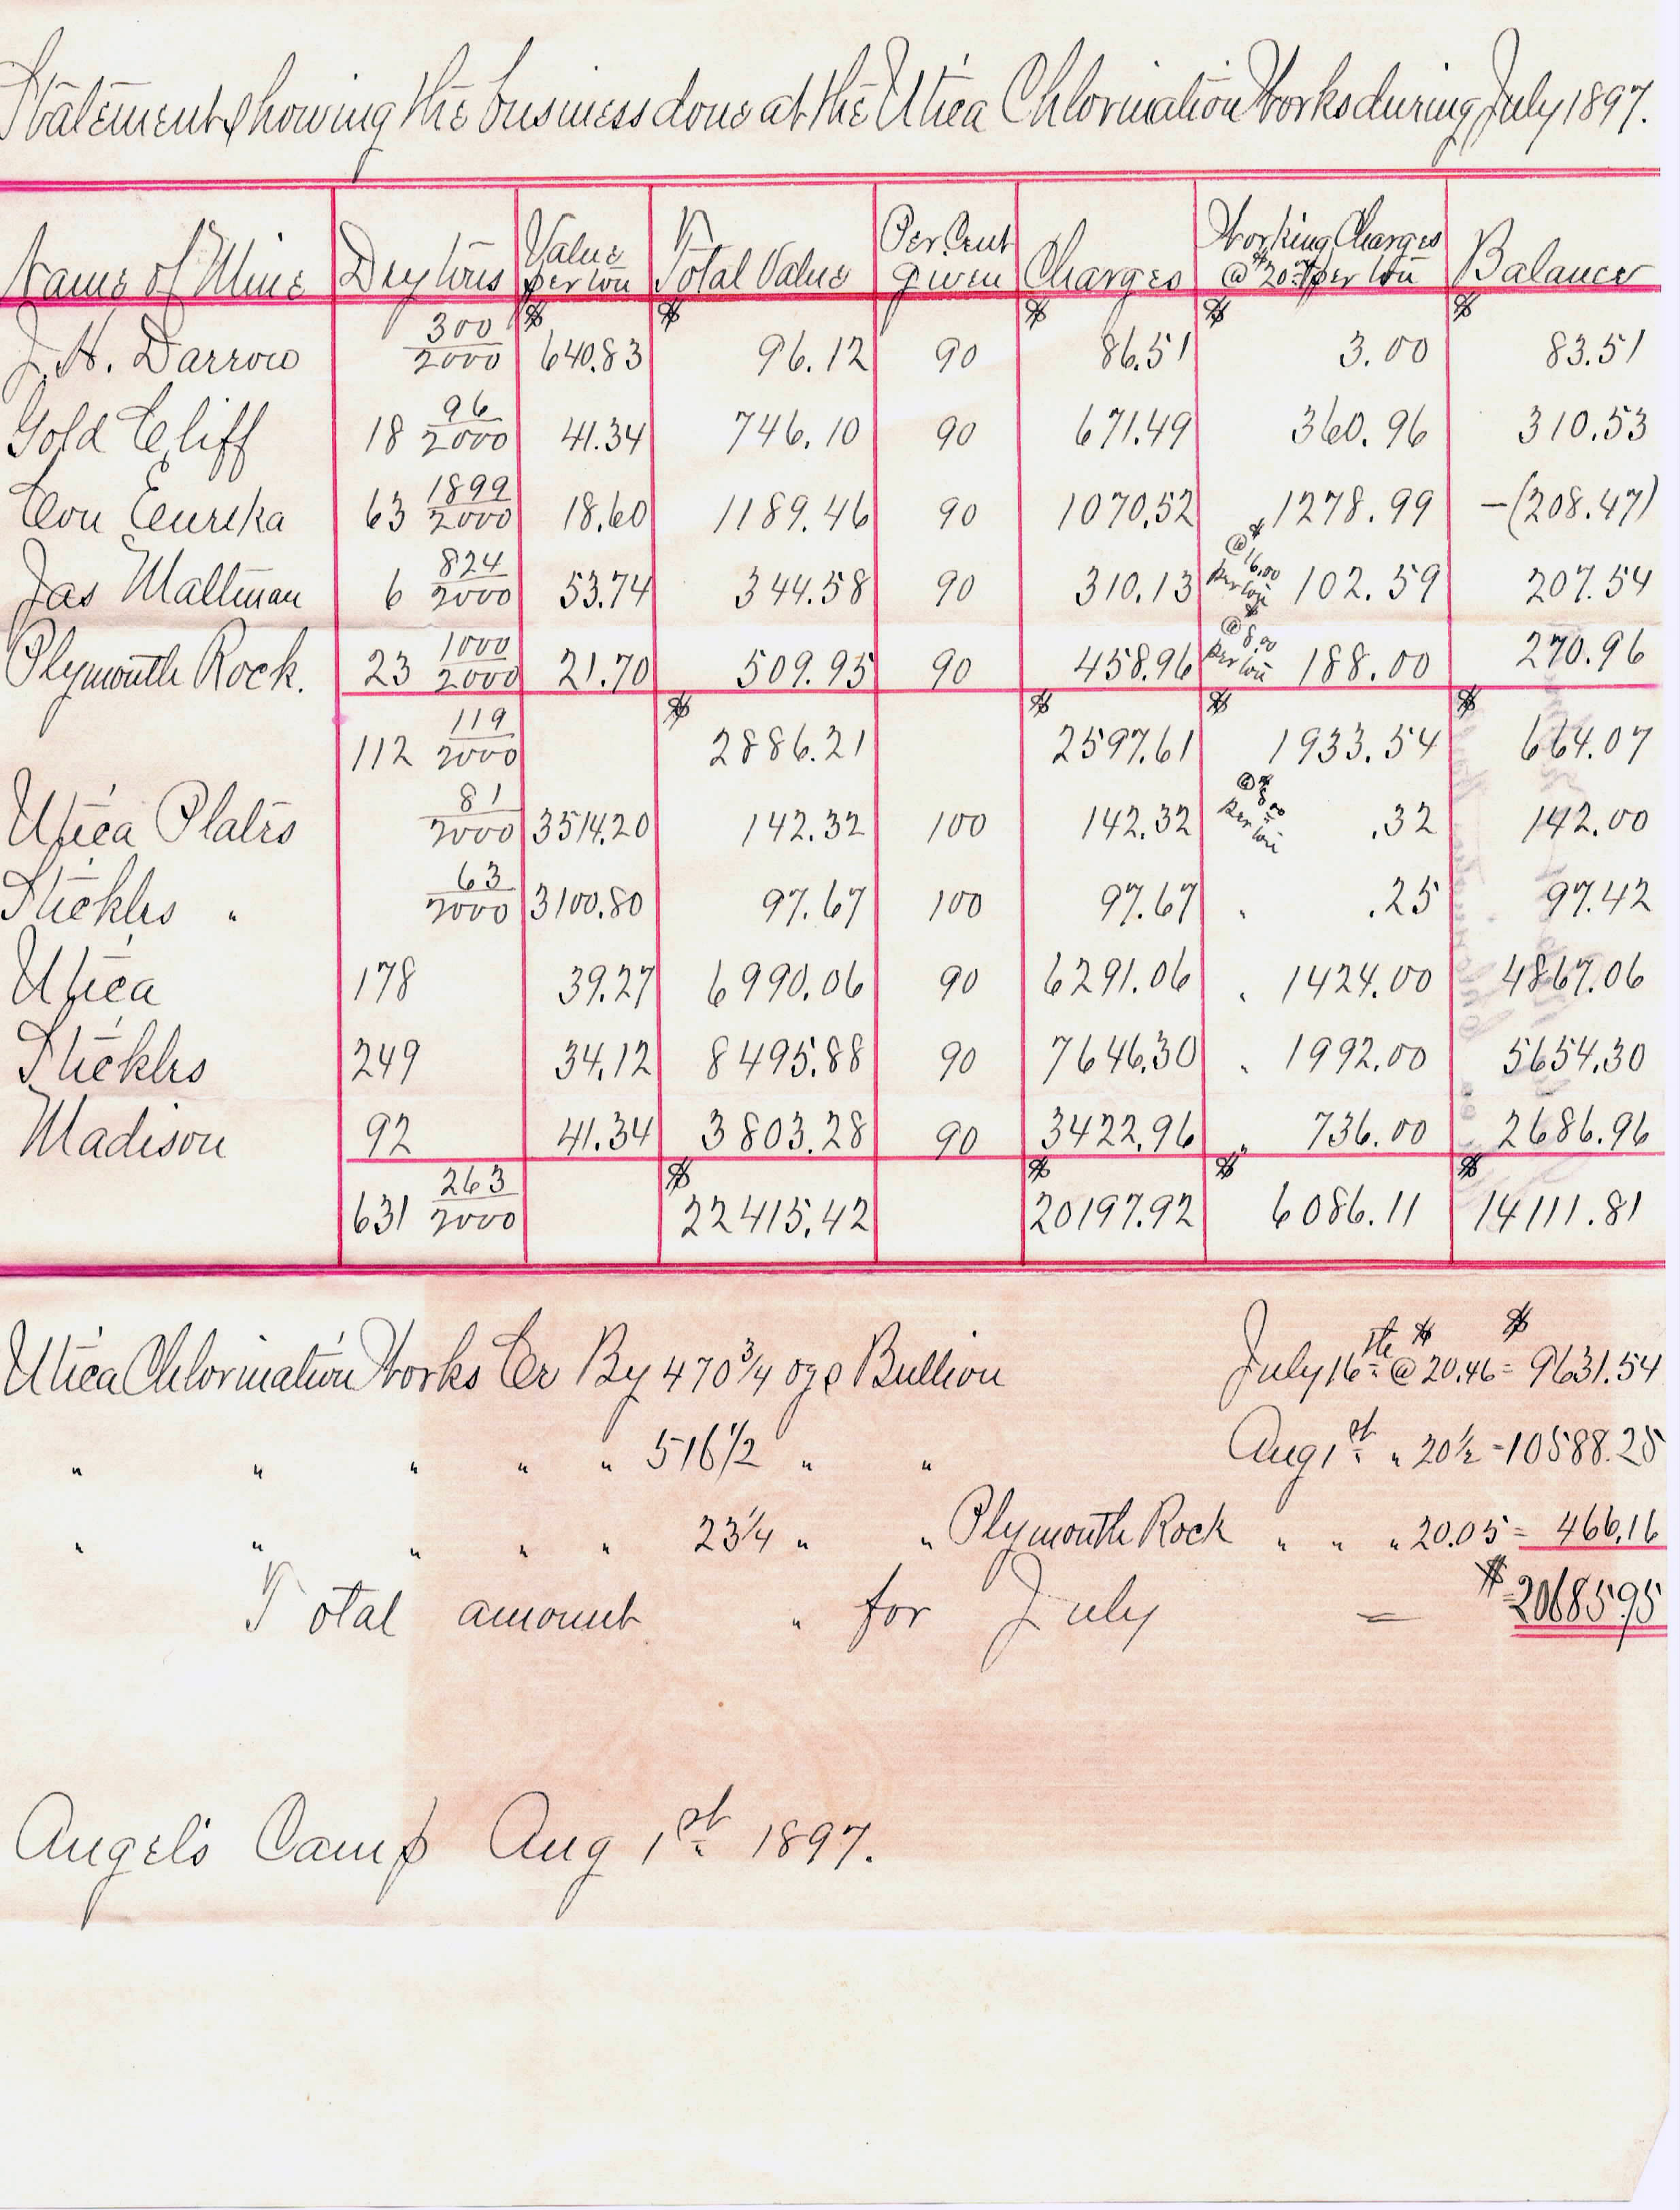 Statement showing the business done at the Utica Chlorination Works during July 1897.
Name of Mine Dry tons Value per ton Total Value Per Cent given Charges Working Charges @ $20.00 per ton Balance
J. H. Darrow 300/2000 $640.83 $96.12 90 $86.51 $3.00 $83.51
Gold Cliff 18 96/2000 41.34 746.10 90 671.49 360.96 310.53
Con Eureka 63 1899/2000 18.60 1189.46 90 1070.52 1278.99 -(208.47)
Jas Maltman 6 824/2000 53.74 344.58 90 310.13 @ $16.00 per ton 102.59 207.54
Plymouth Rock. 23 1000/2000 21.70 509.95 90 458.96 @ $8.00 per ton 188.00 270.96
112 119/2000 $2886.21 $2597.61 $1933.54 $664.07
Utica Plates 81/2000 3514.20 142.32 100 142.32 @ $8.00 per ton .32 142.00
Stickles " 63/2000 3100.80 97.67 100 97.67 " .25 97.42
Utica 178 39.27 6990.06 90 6291.06 " 1424.00 4867.06
Stickles 249 34.12 8495.88 90 7646.30 " 1992.00 5654.30
Madison 92 41.34 3803.28 90 3422.96 " 736.00 2686.96
631 263/2000 $22415.42 $20197.92 $6086.11 $14111.81
Utica Chlorination Works Cr By 470 3/4 ozs Bullion July 16th @ $20.46 = $9631.54
" " " " " 516 1/2 " " Aug 1st " 20 1/2 = 10588.25
" " " " " 23 1/4 " " Plymouth Rock " " " 20.05 = 466.16
Total amount " for July = $20685.95
Angels Camp Aug 1st 1897.